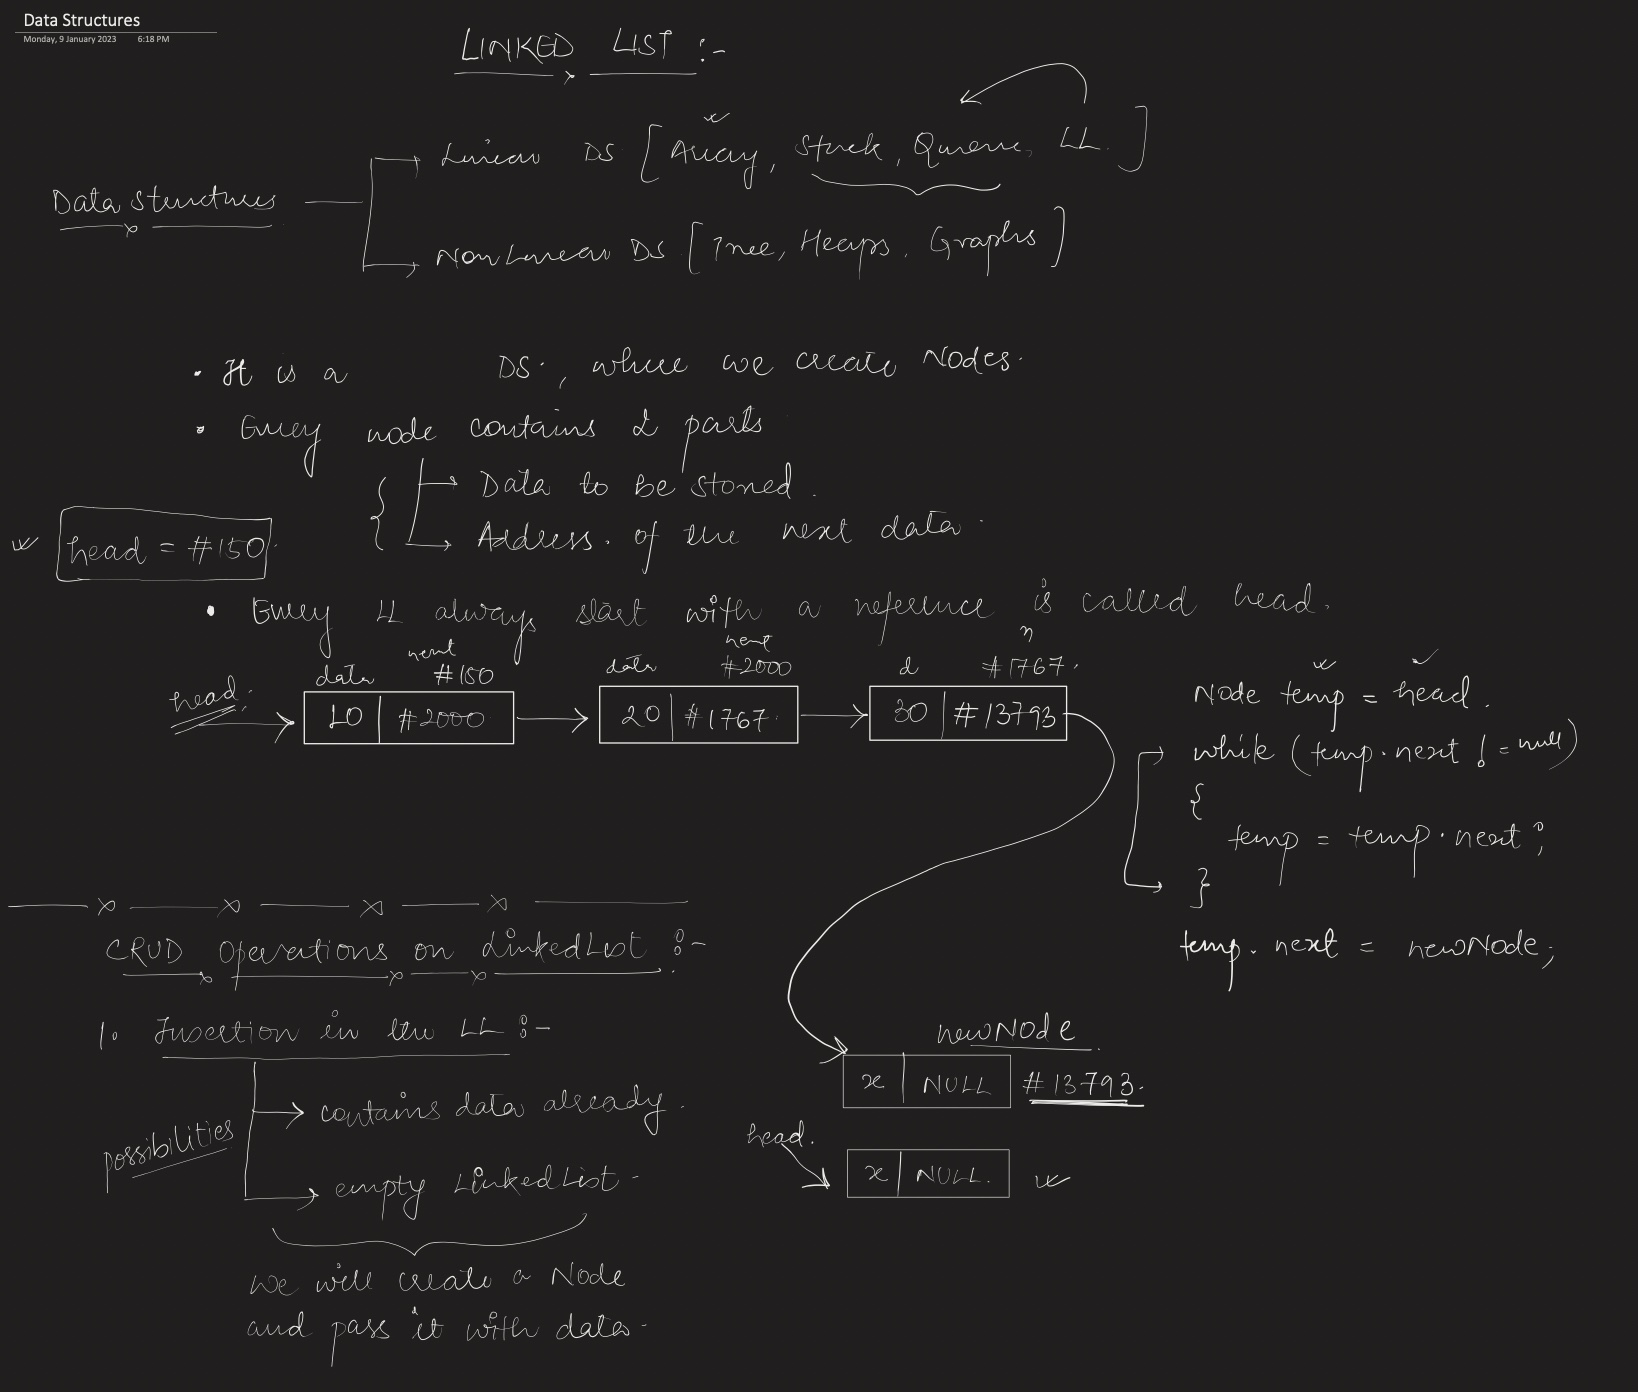 Data Structures
Monday, 9 January 2023 6:18 PM
LINKED LIST :-
Data Structures
Linear DS [Array, Stack, Queue, LL.]
Non Linear DS [Tree, Heaps, Graphs]
• It is a DS., where we create Nodes.
• Every node contains 2 parts
Data to be stored.
Address. of the next data.
head = #150.
• Every LL always start with a reference is called head.
data next #150
data next #2000
d n #1767.
head:
10 | #2000
20 | #1767.
30 | #13793
Node temp = head.
while (temp.next != null)
{
temp = temp.next;
}
temp.next = newNode;
CRUD Operations on LinkedList :-
1. Insertion in the LL :-
possibilities
contains data already.
empty LinkedList -
we will create a Node
and pass it with data-
newNode.
x | NULL #13793.
head.
x | NULL.